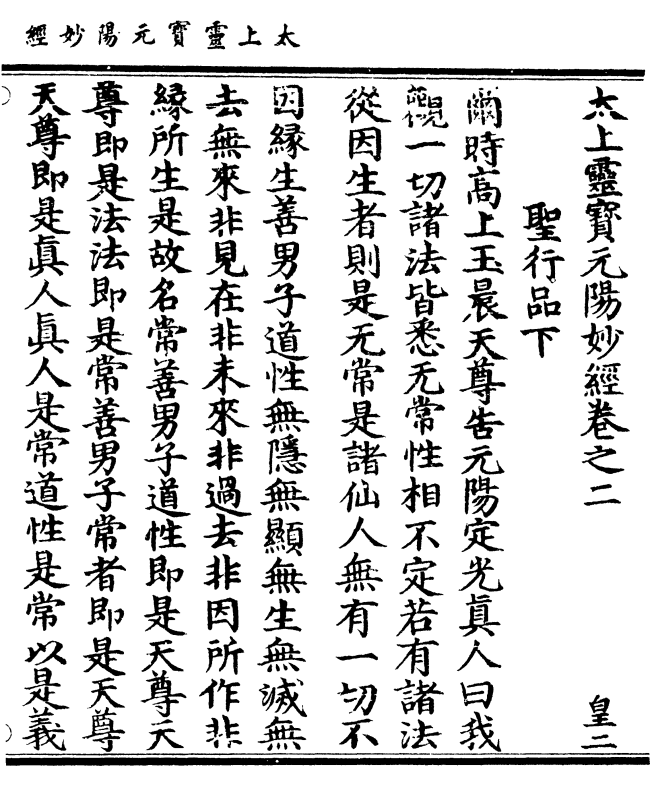 太上靈寳元陽妙經
太上靈寳元陽妙經卷之二
皇二
聖行品下
爾時高上玉晨天尊告元陽定光真人曰我
觀一切諸法皆悉无常性相不定若有諸法
從因生者則是无常是諸仙人無有一切不
因縁生善男子道性無隱無顯無生無滅無
去無來非見在非未來非過去非因所作非
縁所生是故名常善男子道性即是天尊天
尊即是法法即是常善男子常者即是天尊
天尊即是真人真人是常道性是常以是義